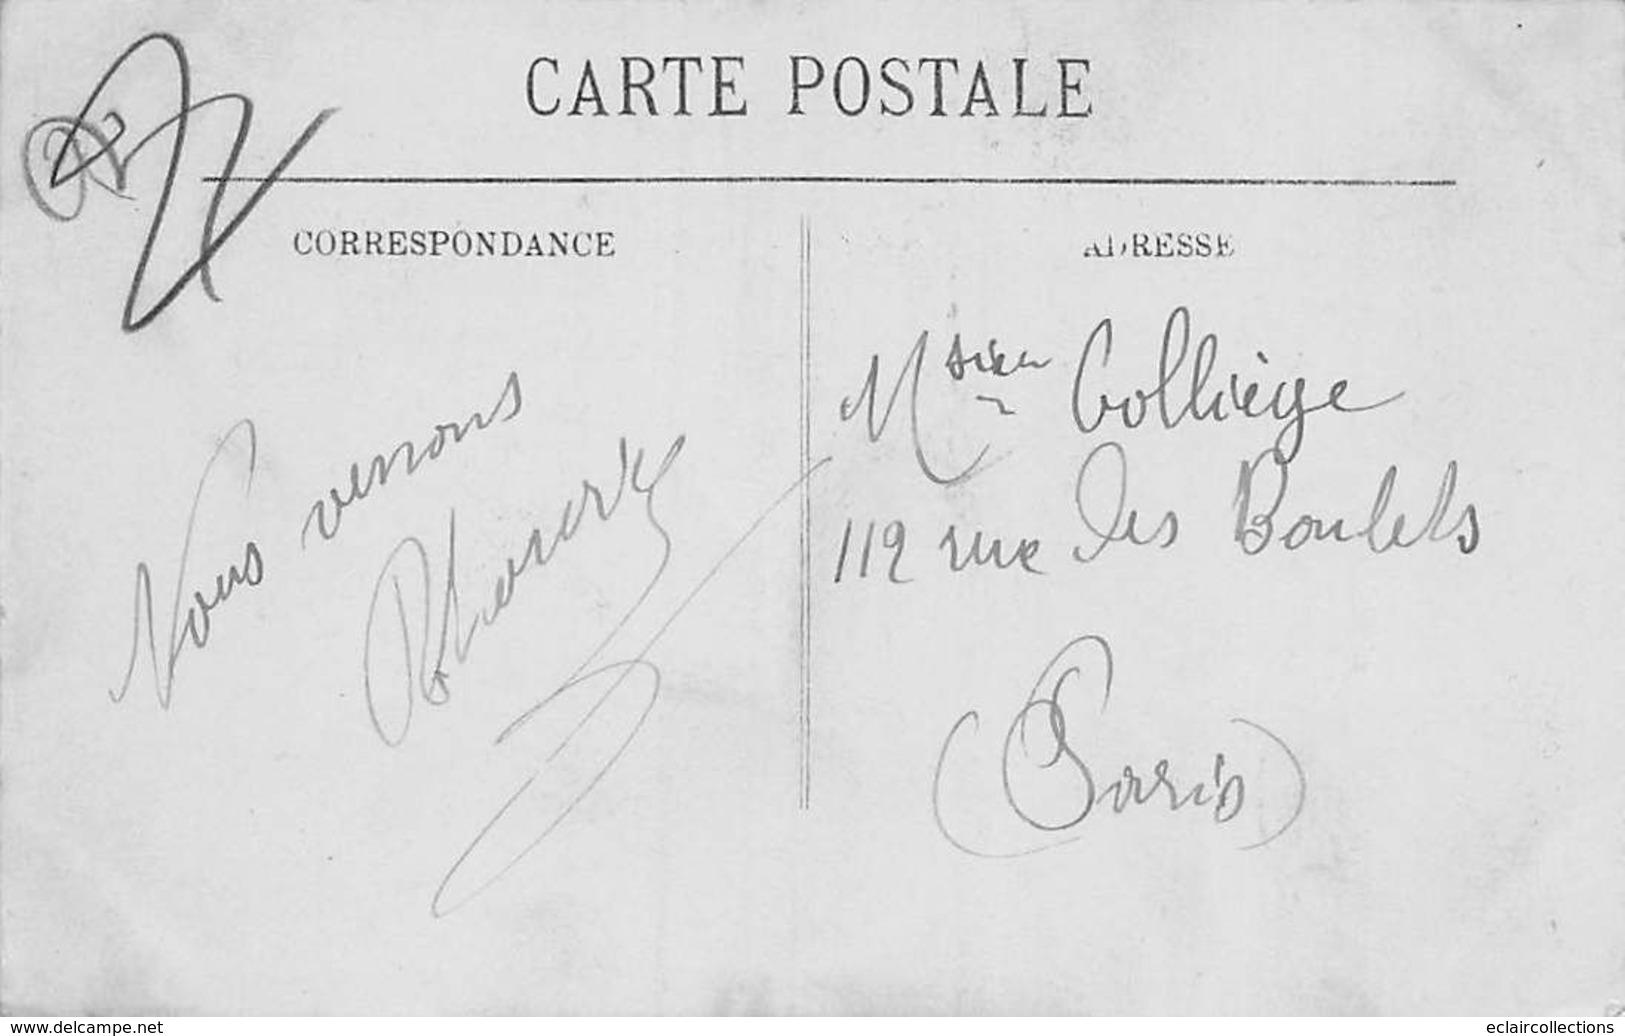 CARTE POSTALE
CORRESPONDANCE
ADRESSE
Nous verrons
Msieu Colliège
112 rue des Boulets
(Paris)
www.delcampe.net
eclaircollections